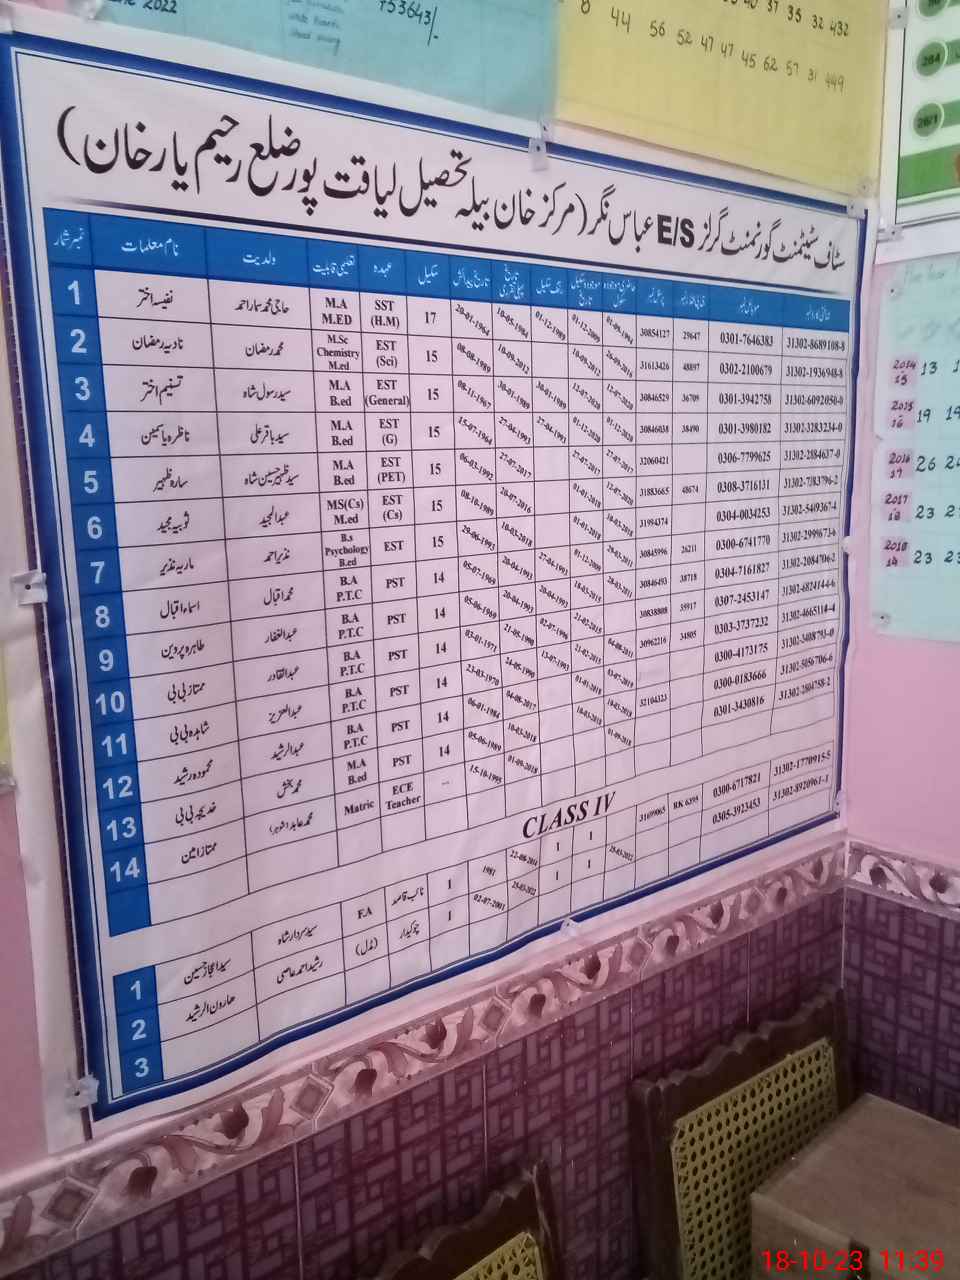 2022
453643/-
8 44 56 52 47 47 45 62 57 31 449
37 35 32 432
سٹاف سٹیٹمنٹ گورنمنٹ گرلز E/S عباس نگر (مرکز خان بیلہ تحصیل لیاقت پور ضلع رحیم یار خان)
نمبر شمار نام معلمات ولدیت تعلیمی قابلیت عہدہ سکیل تاریخ پیدائش
1 نفیسہ اختر M.A M.ED SST (H.M) 17 20-01-1964 10-05-1984 01-12-1989 01-12-2009 01-09-1994 30854127 29647 0301-7646383 31302-8689108-8
2 نادیہ رمضان محمد رمضان M.Sc Chemistry M.ed EST (Sci) 15 08-08-1989 10-09-2012 10-09-2012 31613426 48897 0302-2100679 31302-1936948-8
3 تسنیم اختر سید رسول شاہ M.A B.ed EST (General) 15 08-11-1967 30-01-1989 30-01-1989 12-07-2020 12-07-2020 30846529 36709 0301-3942758 31302-6092050-0
4 ناظرہ یاسمین سید باقر علی M.A B.ed EST (G) 15 15-07-1964 27-04-1993 27-04-1993 01-12-2020 01-12-2020 30846038 38490 0301-3980182 31302-3283234-0
5 سارہ ظہیر سید ظہیر حسین شاہ M.A B.ed EST (PET) 15 06-03-1992 27-07-2017 27-07-2017 27-07-2017 32060421 0306-7799625 31302-2884637-0
6 ثوبیہ مجید عبدالمجید MS(Cs) M.ed EST (Cs) 15 08-10-1989 20-07-2016 01-01-2018 12-07-2020 31883665 48674 0308-3716131 31302-7783796-2
7 ماریہ نذیر نذیر احمد B.s Psychology B.ed EST 15 29-06-1993 10-03-2018 01-03-2018 10-03-2018 31994374 0304-0034253 31302-5409367-4
8 اسماء اقبال محمد اقبال B.A P.T.C PST 14 05-07-1969 20-04-1993 27-04-1993 01-12-2009 30845996 26211 0300-6741770 31302-2999673-6
9 طاہرہ پروین عبدالغفار B.A P.T.C PST 14 05-06-1969 20-04-1993 20-04-1993 18-03-2015 30846493 38718 0304-7161827 31302-2084706-2
10 ممتاز بی بی عبدالقادر B.A P.T.C PST 14 03-01-1971 21-05-1990 02-07-1996 21-02-2015 30838808 35917 0307-2453147
11 شاہدہ بی بی عبدالعزیز B.A P.T.C PST 14 23-03-1970 24-05-1990 13-07-1993 21-02-2015 04-08-2011 30962216 34805 0303-3737232 31302-4665114-4
12 محمودہ رشید عبدالرشید B.A P.T.C PST 14 06-01-1984 04-08-2017 01-01-2018 03-07-2019 0300-4173175
13 خدیجہ بی بی محمد بخش M.A B.ed PST 14 05-06-1989 10-03-2018 10-03-2018 10-03-2018 32104323 0300-0183666 31302-5056706-6
14 ممتاز امین محمد عابد (شوہر) Matric ECE Teacher -- 15-10-1995 01-09-2018 01-09-2018 0301-3430816 31302-2804758-2
CLASS IV
1 سید اعجاز حسین سید سردار شاہ F.A نائب قاصد 1 1981 22-08-2014 1 1 31699065 RK 6395 0300-6717821 31302-1770915-5
2 ہارون الرشید رشید احمد عاصی (مڈل) چوکیدار 1 02-07-2001 25-03-2022 1 1 25-03-2022 0305-3923453 31302-8920961-1
3
2014 15 13
2015 16 19 19
2016 17 26
2017 18 23
2018 19 23
18-10-23 11:39